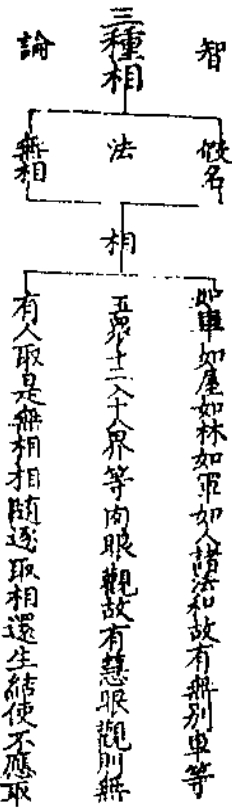 智
論
三種相
假名
法
無相
相
如車如屋如林如軍如人諸法和故有無別車等
五衆十二入十八界等肉眼觀故有慧眼觀則無
有人取是無相相隨逐取相還生結使不應取